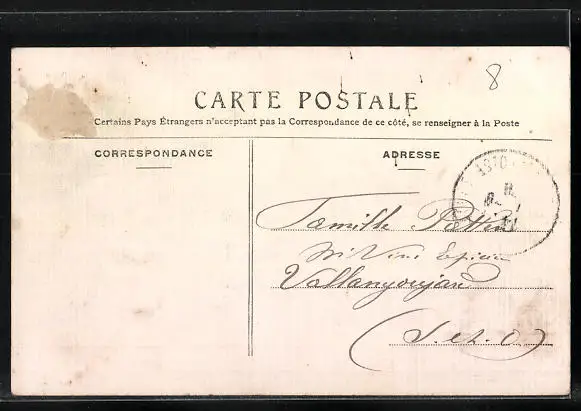 8
CARTE POSTALE
Certains Pays Étrangers n'acceptant pas la Correspondance de ce côté, se renseigner à la Poste
CORRESPONDANCE
ADRESSE
Famille
Vallangoujard
(S. et. O)